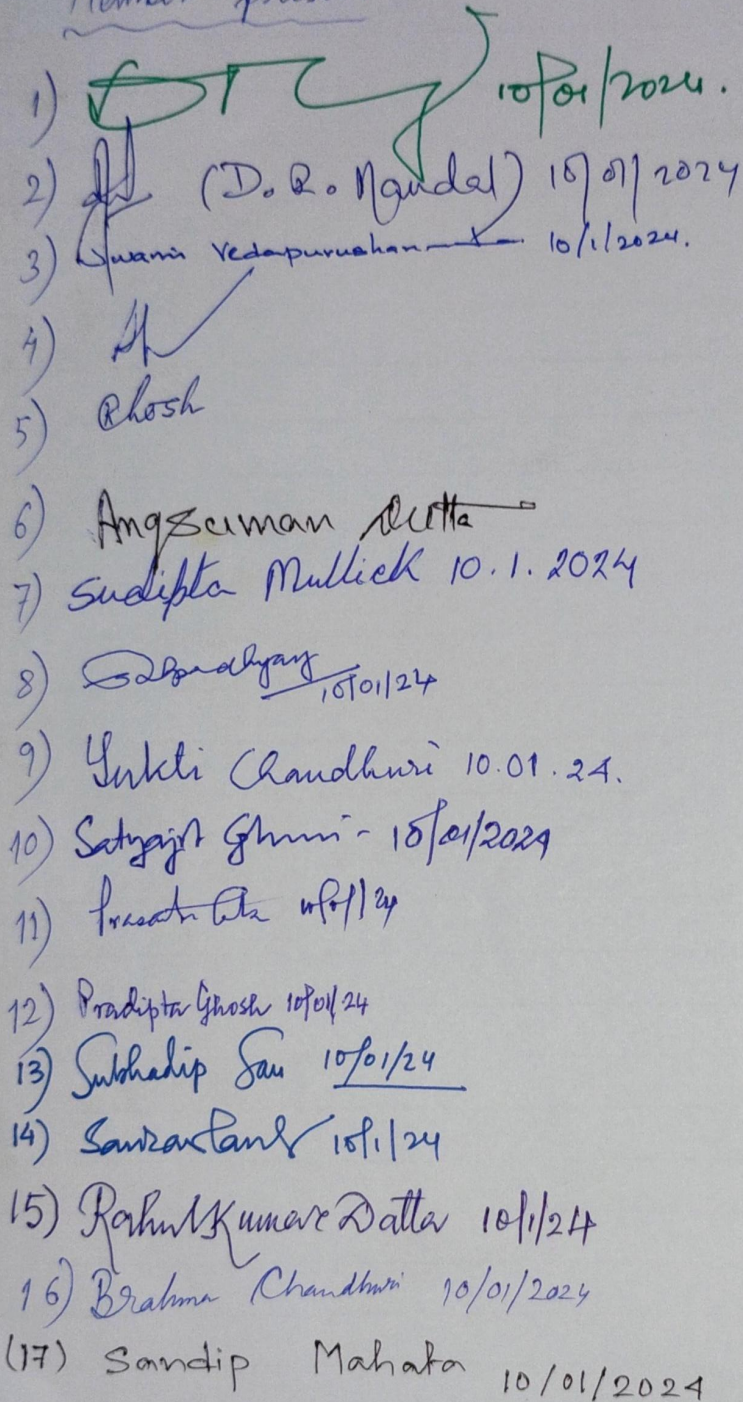 Member
1) 10/01/2024.
2) (D. R. Mandal) 10/01/2024
3) Swami Vedapurushananda 10/1/2024.
4)
5) Ghosh
6) Angsuman Dutta
7) Sudipta Mullick 10.1.2024
8) 10/01/24
9) Yukti Chaudhuri 10.01.24.
10) Satyajit 10/01/2024
11) 10/01/24
12) Pradipta Ghosh 10/01/24
13) Subhadip Sau 10/01/24
14) 10/1/24
15) Rahul Kumar Datta 10/1/24
16) Brahma Chandhuri 10/01/2024
(17) Sandip Mahata 10/01/2024